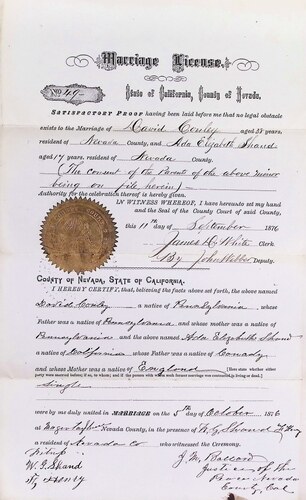 Marriage License.
No 49
State of California, County of Nevada.
SATISFACTORY PROOF having been laid before me that no legal obstacle
exists to the Marriage of David Conley aged 31 years,
resident of Nevada County, and Ada Elizabeth Shand
aged 17 years, resident of Nevada County.
(The Consent of the Parent of the above minor
being on file herein)
Authority for the celebration thereof is hereby given.
IN WITNESS WHEREOF, I have hereunto set my hand
and the Seal of the County Court of said County,
this 11th day of September 1876
James D. White Clerk
By John Webber Deputy.
COUNTY OF NEVADA, STATE OF CALIFORNIA.
I HEREBY CERTIFY, that, believing the facts above set forth, the above named
David Conley a native of Pennsylvania, whose
Father was a native of Pennsylvania and whose mother was a native of
Pennsylvania and the above named Ada Elizabeth Shand
a native of California whose Father was a native of Canady
and whose Mother was a native of England
Single
were by me duly united in MARRIAGE on the 5th day of October 1876
at Nevada County, in the presence of W. G. Shand
resident of Nevada Co who witnessed the Ceremony.
W. G. Shand
J. M. Ballard
Justice of the
Peace Nevada
County Cal